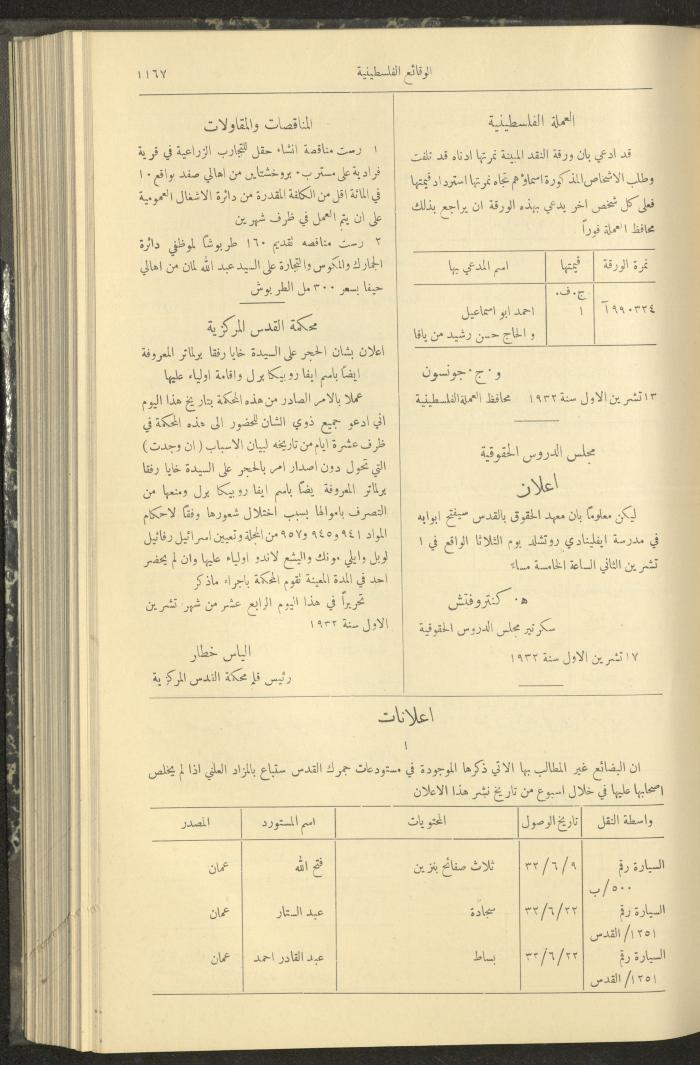 الوقائع الفلسطينية
١١٦٧
العملة الفلسطينية
قد ادعي بان ورقة النقد المبينة نمرتها ادناه قد تلفت
وطلب الاشخاص المذكورة اسماؤهم تجاه نمرتها استرداد قيمتها
فعلى كل شخص اخر يدعي بهذه الورقة ان يراجع بذلك
محافظ العملة فوراً
نمرة الورقة قيمتها اسم المدعي بها
ج.ف.
٩٩٠٣٢٤ آ ١ احمد ابو اسماعيل
و الحاج حسن رشيد من يافا
و ٠ ج ٠ جونسون
١٣ تشرين الاول سنة ١٩٣٢ محافظ العملة الفلسطينية
مجلس الدروس الحقوقية
اعلان
ليكن معلوماً بان معهد الحقوق بالقدس سيفتح ابوابه
في مدرسة ايفلينادي روتشلد يوم الثلاثا الواقع في ١
تشرين الثاني الساعة الخامسة مساءً
ه ٠ كنتروفتش
سكرتير مجلس الدروس الحقوقية
١٧ تشرين الاول سنة ١٩٣٢
المناقصات والمقاولات
١ رست مناقصة انشاء حقل للتجارب الزراعية في قرية
فرادية على مستر ب٠ بروخشتاين من اهالي صفد بواقع ١٠
في المائة اقل من الكلفة المقدرة من دائرة الاشغال العمومية
على ان يتم العمل في ظرف شهرين
٢ رست مناقصه تقديم ١٦٠ طربوشاً لموظفي دائرة
الجمارك والمكوس والتجارة على السيد عبد الله لمان من اهالي
حيفا بسعر ٣٠٠ مل الطربوش
محكمة القدس المركزية
اعلان بشان الحجر على السيدة خايا رفقا برلماتر المعروفة
ايضاً باسم ايفا روبيكا برل واقامة اولياء عليها
عملا بالامر الصادر من هذه المحكمة بتاريخ هذا اليوم
اني ادعو جميع ذوي الشان للحضور الى هذه المحكمة في
ظرف عشرة ايام من تاريخه لبيان الاسباب (ان وجدت)
التي تحول دون اصدار امر بالحجر على السيدة خايا رفقا
برلماتر المعروفة يضاً باسم ايفا روبيكا برل ومنعها من
التصرف باموالها بسبب اختلال شعورها وفقاً لاحكام
المواد ٩٤١ و٩٤٥ و٩٥٧ من المجلة وتعيين اسرائيل رفائيل
لوبل وايلي مونك واليشع لاندو اولياء عليها وان لم يحضر
احد في المدة المعينة تقوم المحكمة باجراء ماذكر
تحريراً في هذا اليوم الرابع عشر من شهر تشرين
الاول سنة ١٩٣٢
الياس خطار
رئيس قلم محكمة القدس المركزية
اعلانات
١
ان البضائع غير المطالب بها الاتي ذكرها الموجودة في مستودعات جمرك القدس ستباع بالمزاد العلني اذا لم يخلص
اصحابها عليها في خلال اسبوع من تاريخ نشر هذا الاعلان
واسطة النقل تاريخ الوصول المحتويات اسم المستورد المصدر
السيارة رقم ٣٢/٦/٩ ثلاث صفائح بنزين فتح الله عمان
٥٠٠/ب
السيارة رقم ٣٢/٦/٢٢ سجادة عبد الستار عمان
١٢٥١/القدس
السيارة رقم ٣٢/٦/٢٢ بساط عبد القادر احمد عمان
١٢٥١/القدس